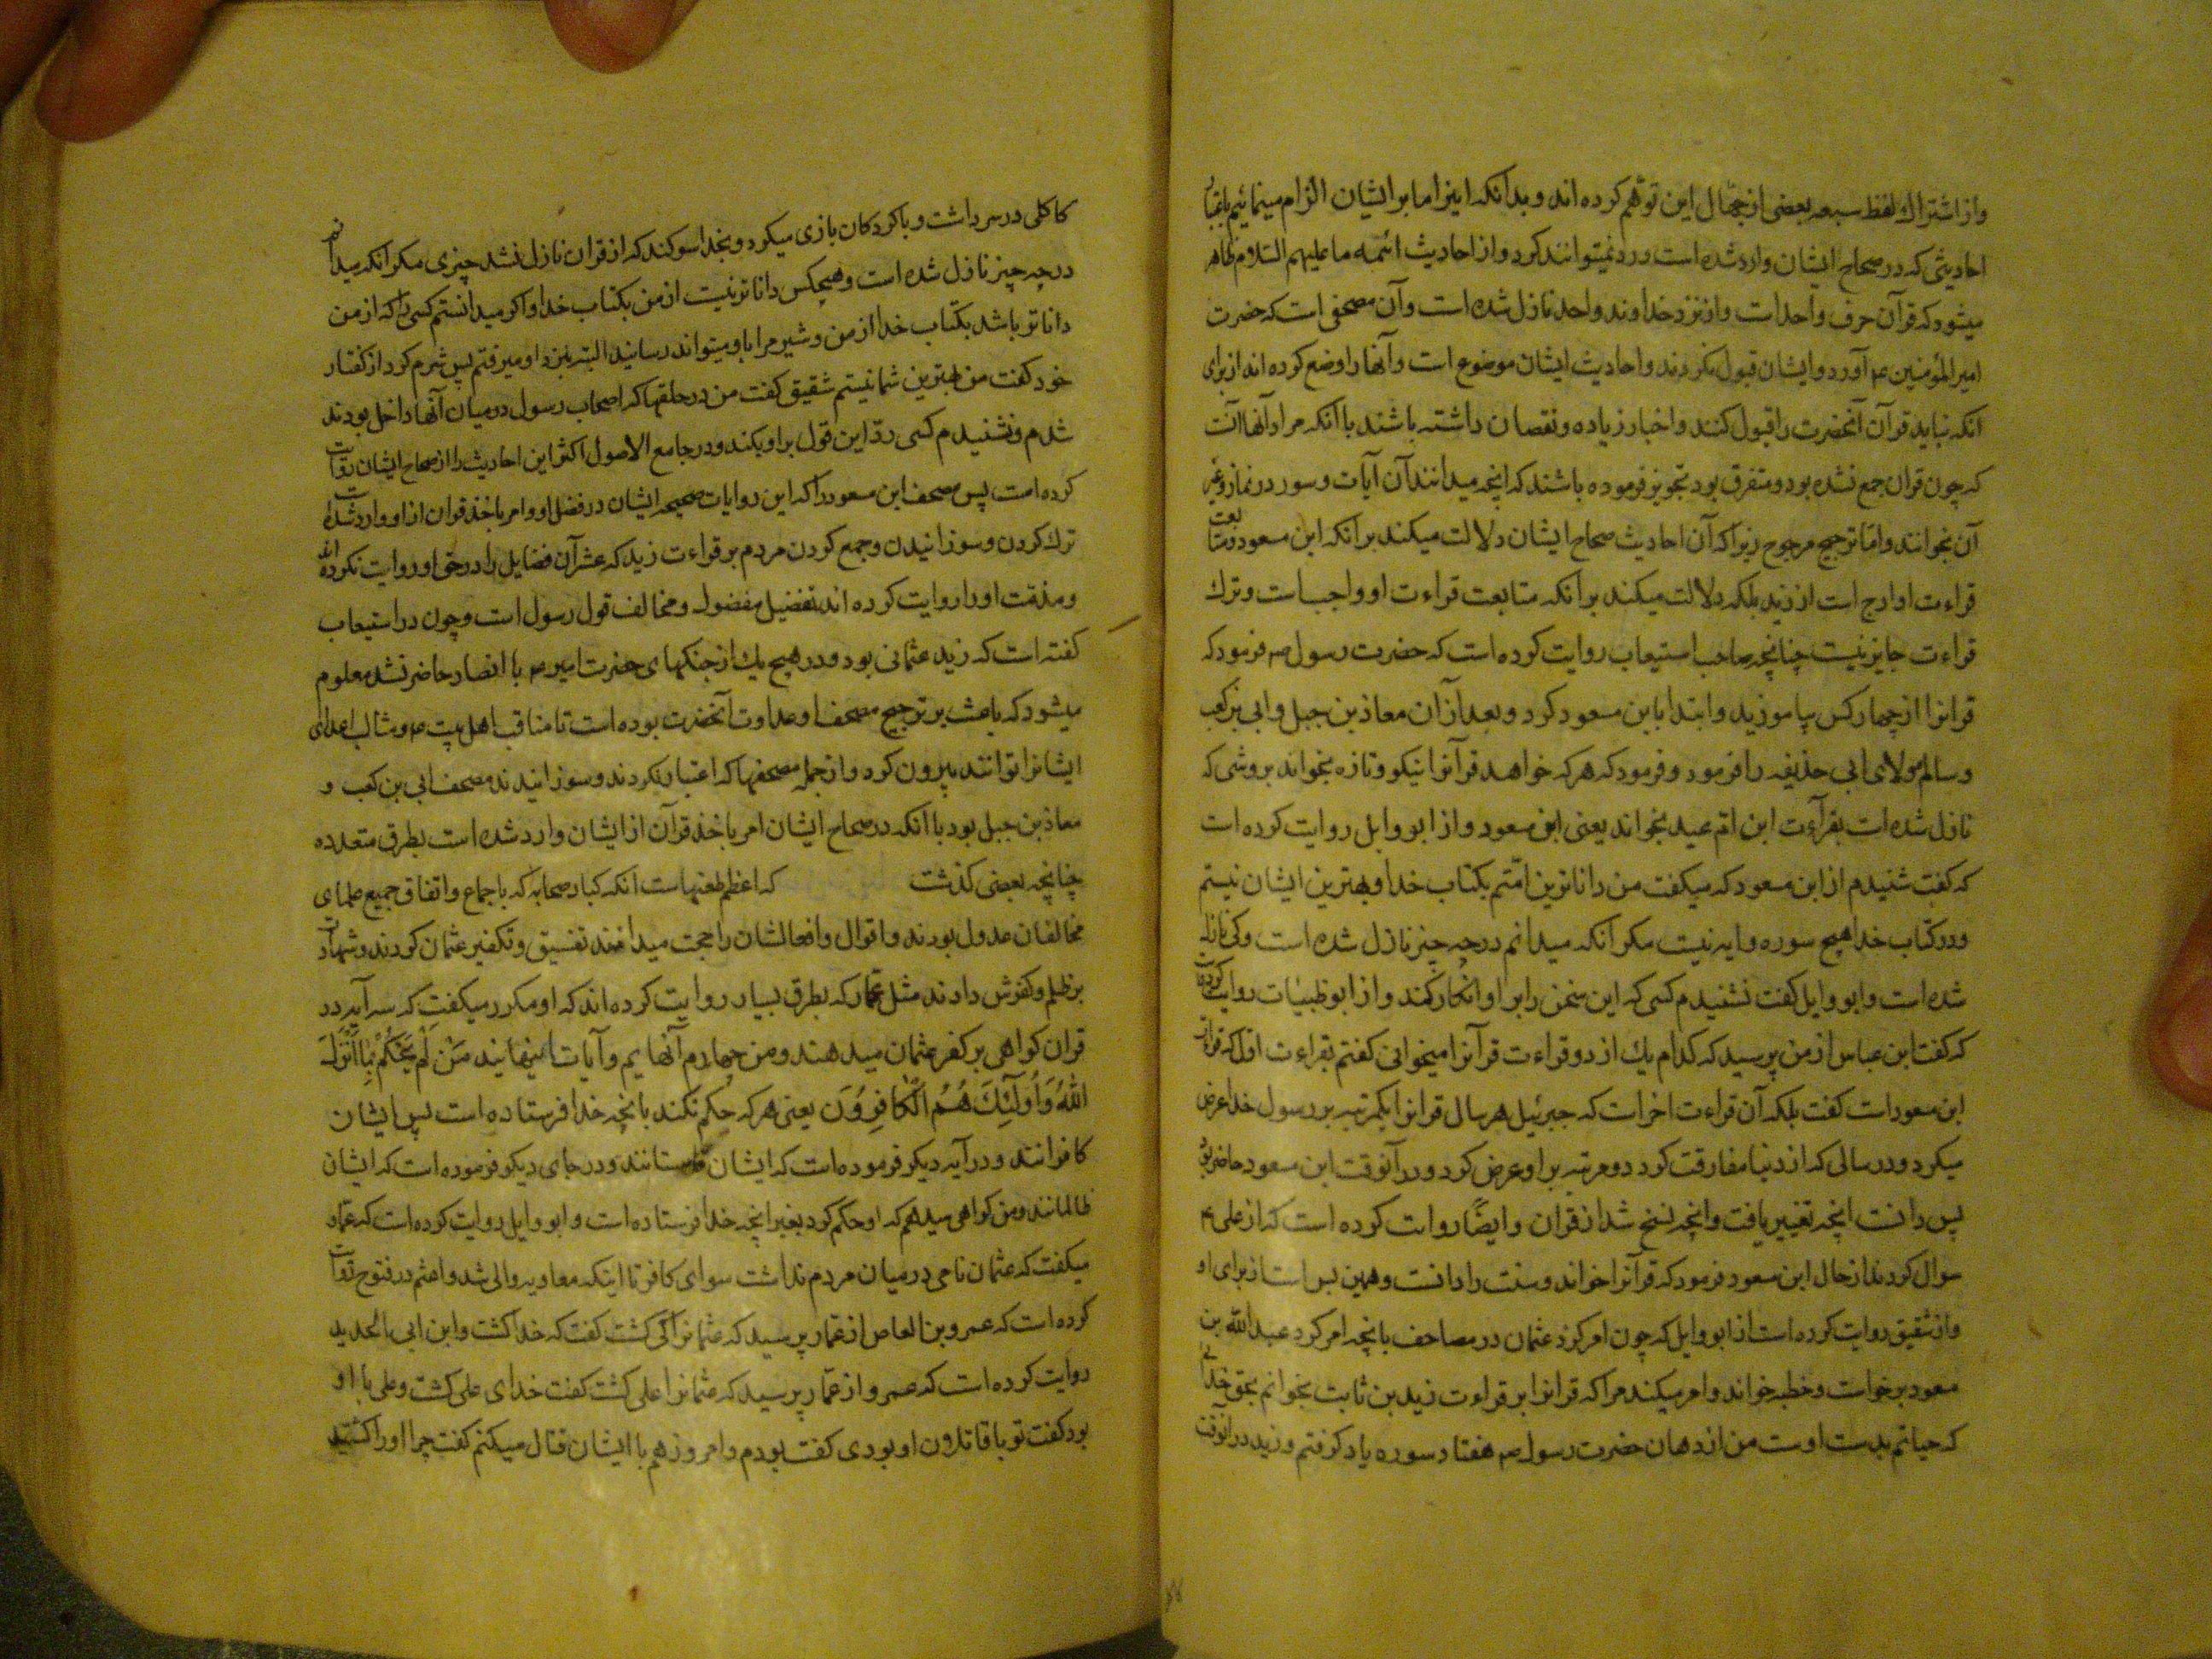 واز اشتراك لفظ سبعه بعضی از جهّال این توهّم کرده‌اند وبدانکه اینرا ما بر ایشان الزام مینمائیم باعتبار
احادیثی که در صحاح ایشان وارد شده است ورد نمیتوانند کرد واز احادیث ائمه ما علیهم السّلام ظاهر
میشود که قرآن حرف واحد است واز نزد خداوند واحد نازل شده است وآن مصحفی است که حضرت
امیرالمؤمنین ع آورد وایشان قبول نکردند واحادیث ایشان موضوع است وآنها را وضع کرده اند از برای
آنکه نباید قرآن آنحضرت را قبول کنند واخبار زیاده ونقصان داشته باشند با آنکه مراد آنها آنست
که چون قران جمع نشده بود ومتفرق بود تجویز فرموده باشند که آنچه میدانند آن آیات وسور در نماز وغیر
آن بخوانند وامّا ترجیح مرجوح زیرا که آن احادیث صحاح ایشان دلالت میکند بر آنکه ابن مسعود ومتابعت
قراءت او ارجح است از زید بلکه دلالت میکند بر آنکه متابعت قراءت او واجب است وترك
قراءت جایز نیست چنانچه صاحب استیعاب روایت کرده است که حضرت رسول ص فرمود که
قرانرا از چهار کس بیاموزید وابتدا بابن مسعود کرد وبعد از آن معاذ بن جبل وابی بن کعب
وسالم مولای ابی حذیفه را فرمود وفرمود که هر که خواهد قرآنرا نیکو وتازه بخواند بروشی که
نازل شده است بقرآءت ابن امّ عبد بخواند یعنی ابن مسعود واز ابو وایل روایت کرده است
که گفت شنیدم از ابن مسعود که میکفت من داناترین امّتم بکتاب خدا وبهترین ایشان نیستم
ودر کتاب خدا هیچ سوره وایه نیست مکر آنکه میدانم در چه چیز نازل شده است وکی نازل
شده است وابو وایل کفت نشنیدم کسی که این سخن را بر او انکار کند واز ابو ظبیان روایت کرده
که کفت ابن عباس از من پرسید که کدام یك از دو قراءت قرآنرا میخوانی کفتم قراءت اول که قراءت
ابن مسعود است کفت بلکه آن قراءت اخر است که جبرئیل هر سال قرانرا یکمرتبه بر رسول خدا عرض
میکرد ودر سالی که از دنیا مفارقت کرد دو مرتبه بر او عرض کرد ودر آنوقت ابن مسعود حاضر بود
پس دانست آنچه تغییر یافت وآنچه نسخ شد از قران وایضًا روایت کرده است که از علی ع
سوال کردند از حال ابن مسعود فرمود که قرآنرا خواند وسنت را دانست وهمین بس است از برای او
واز شقیق روایت کرده است از ابو وایل که چون امر کرد عثمان در مصاحف بآنچه امر کرد عبدالله بن
مسعود برخواست وخطبه خواند وامر میکند مرا که قرانرا بر قراءت زید بن ثابت بخوانم بحق خدائی
که حیاتم بدست اوست من از دهان حضرت رسول ص هفتاد سوره یاد کرفتم وزید در آنوقت
کاکلی در سر داشت وبا کودکان بازی میکرد وبخدا سوکند که از قران نازل نشد چیزی مکر آنکه میدانم
در چه چیز نازل شده است وهیچکس داناتر نیست از من بکتاب خدا واکر میدانستم کسی را که از من
داناتر باشد بکتاب خدا از من وشیر مرا باو میتواند رسانید البته بنزد او میرفتم پس شرم کرد از کفتار
خود کفت من بهترین شما نیستم شقیق کفت من در حلقها که اصحاب رسول در میان آنها داخل بودند
شدم ونشنیدم کسی ردّ این قول بر او بکند ودر جامع الاصول اکثر این احادیث را از صحاح ایشان روایت
کرده است پس مصحف ابن مسعود را که این روایات صحیحه ایشان در فضل او وامر باخذ قران از او وارد شده است
ترك کردن وسوزانیدن وجمع کردن مردم بر قراءت زید که عشر آن فضایل را در حق او روایت نکرده اند
ومذمت او را روایت کرده اند تفضیل مفضول ومخالف قول رسول است وچون در استیعاب
کفته است که زید عثمانی بود ودر هیچ یك از جنکهای حضرت امیر ع با انصار حاضر نشد معلوم
میشود که باعث بر ترجیح مصحف او عداوت آنحضرت بوده است تا مناقب اهل بیت ع ومثالب اعدای
ایشانرا توانند بیرون کرد واز جمله مصحفها که اعتبار نکردند وسوزانیدند مصحف ابی بن کعب و
معاذ بن جبل بود با آنکه در صحاح ایشان امر باخذ قرآن از ایشان وارد شده است بطرق متعدده
چنانچه بعضی کذشت که اعظم طعنهاست آنکه کبار صحابه که باجماع واتفاق جمیع علمای
مخالفان عدول بودند واقوال وافعالشان را حجت میدانند تفسیق وتکفیر عثمان کردند وشهادت
بر ظلم وکفرش دادند مثل عمّار که بطرق بسیار روایت کرده اند که او مکرر میکفت که سه آیه در
قران کواهی بر کفر عثمان میدهند ومن چهارم آنهایم وآیات اینهایند مَن لَم یَحْکُمْ بِمَا أَنْزَلَ
اللهُ وَاُولَئِكَ هُمُ الْکَافِرُونَ یعنی هر که حکم نکند بآنچه خدا فرستاده است پس ایشان
کافرانند ودر آیه دیکر فرموده است که ایشان فاسقانند ودر جای دیکر فرموده است که ایشان
ظالمانند ومن کواهی میدهم که او حکم کرد بغیر آنچه خدا فرستاده است وابو وایل روایت کرده است که عمّار
میکفت که عثمان نامی در میان مردم نداشت سوای کافر تا اینکه معاویه والی شد واعثم در فتوح روایت
کرده است که عمرو بن العاص از عمّار پرسید که عثمانرا کی کشت کفت که خدا کشت وابن ابی الحدید
روایت کرده است که عمرو از عمّار پرسید که عثمانرا علی کشت کفت خدای علی کشت وعلی با او
بود کفت تو با قاتلان او بودی کفت بودم وامروز هم با ایشان قتال میکنم کفت چرا او را کشتید